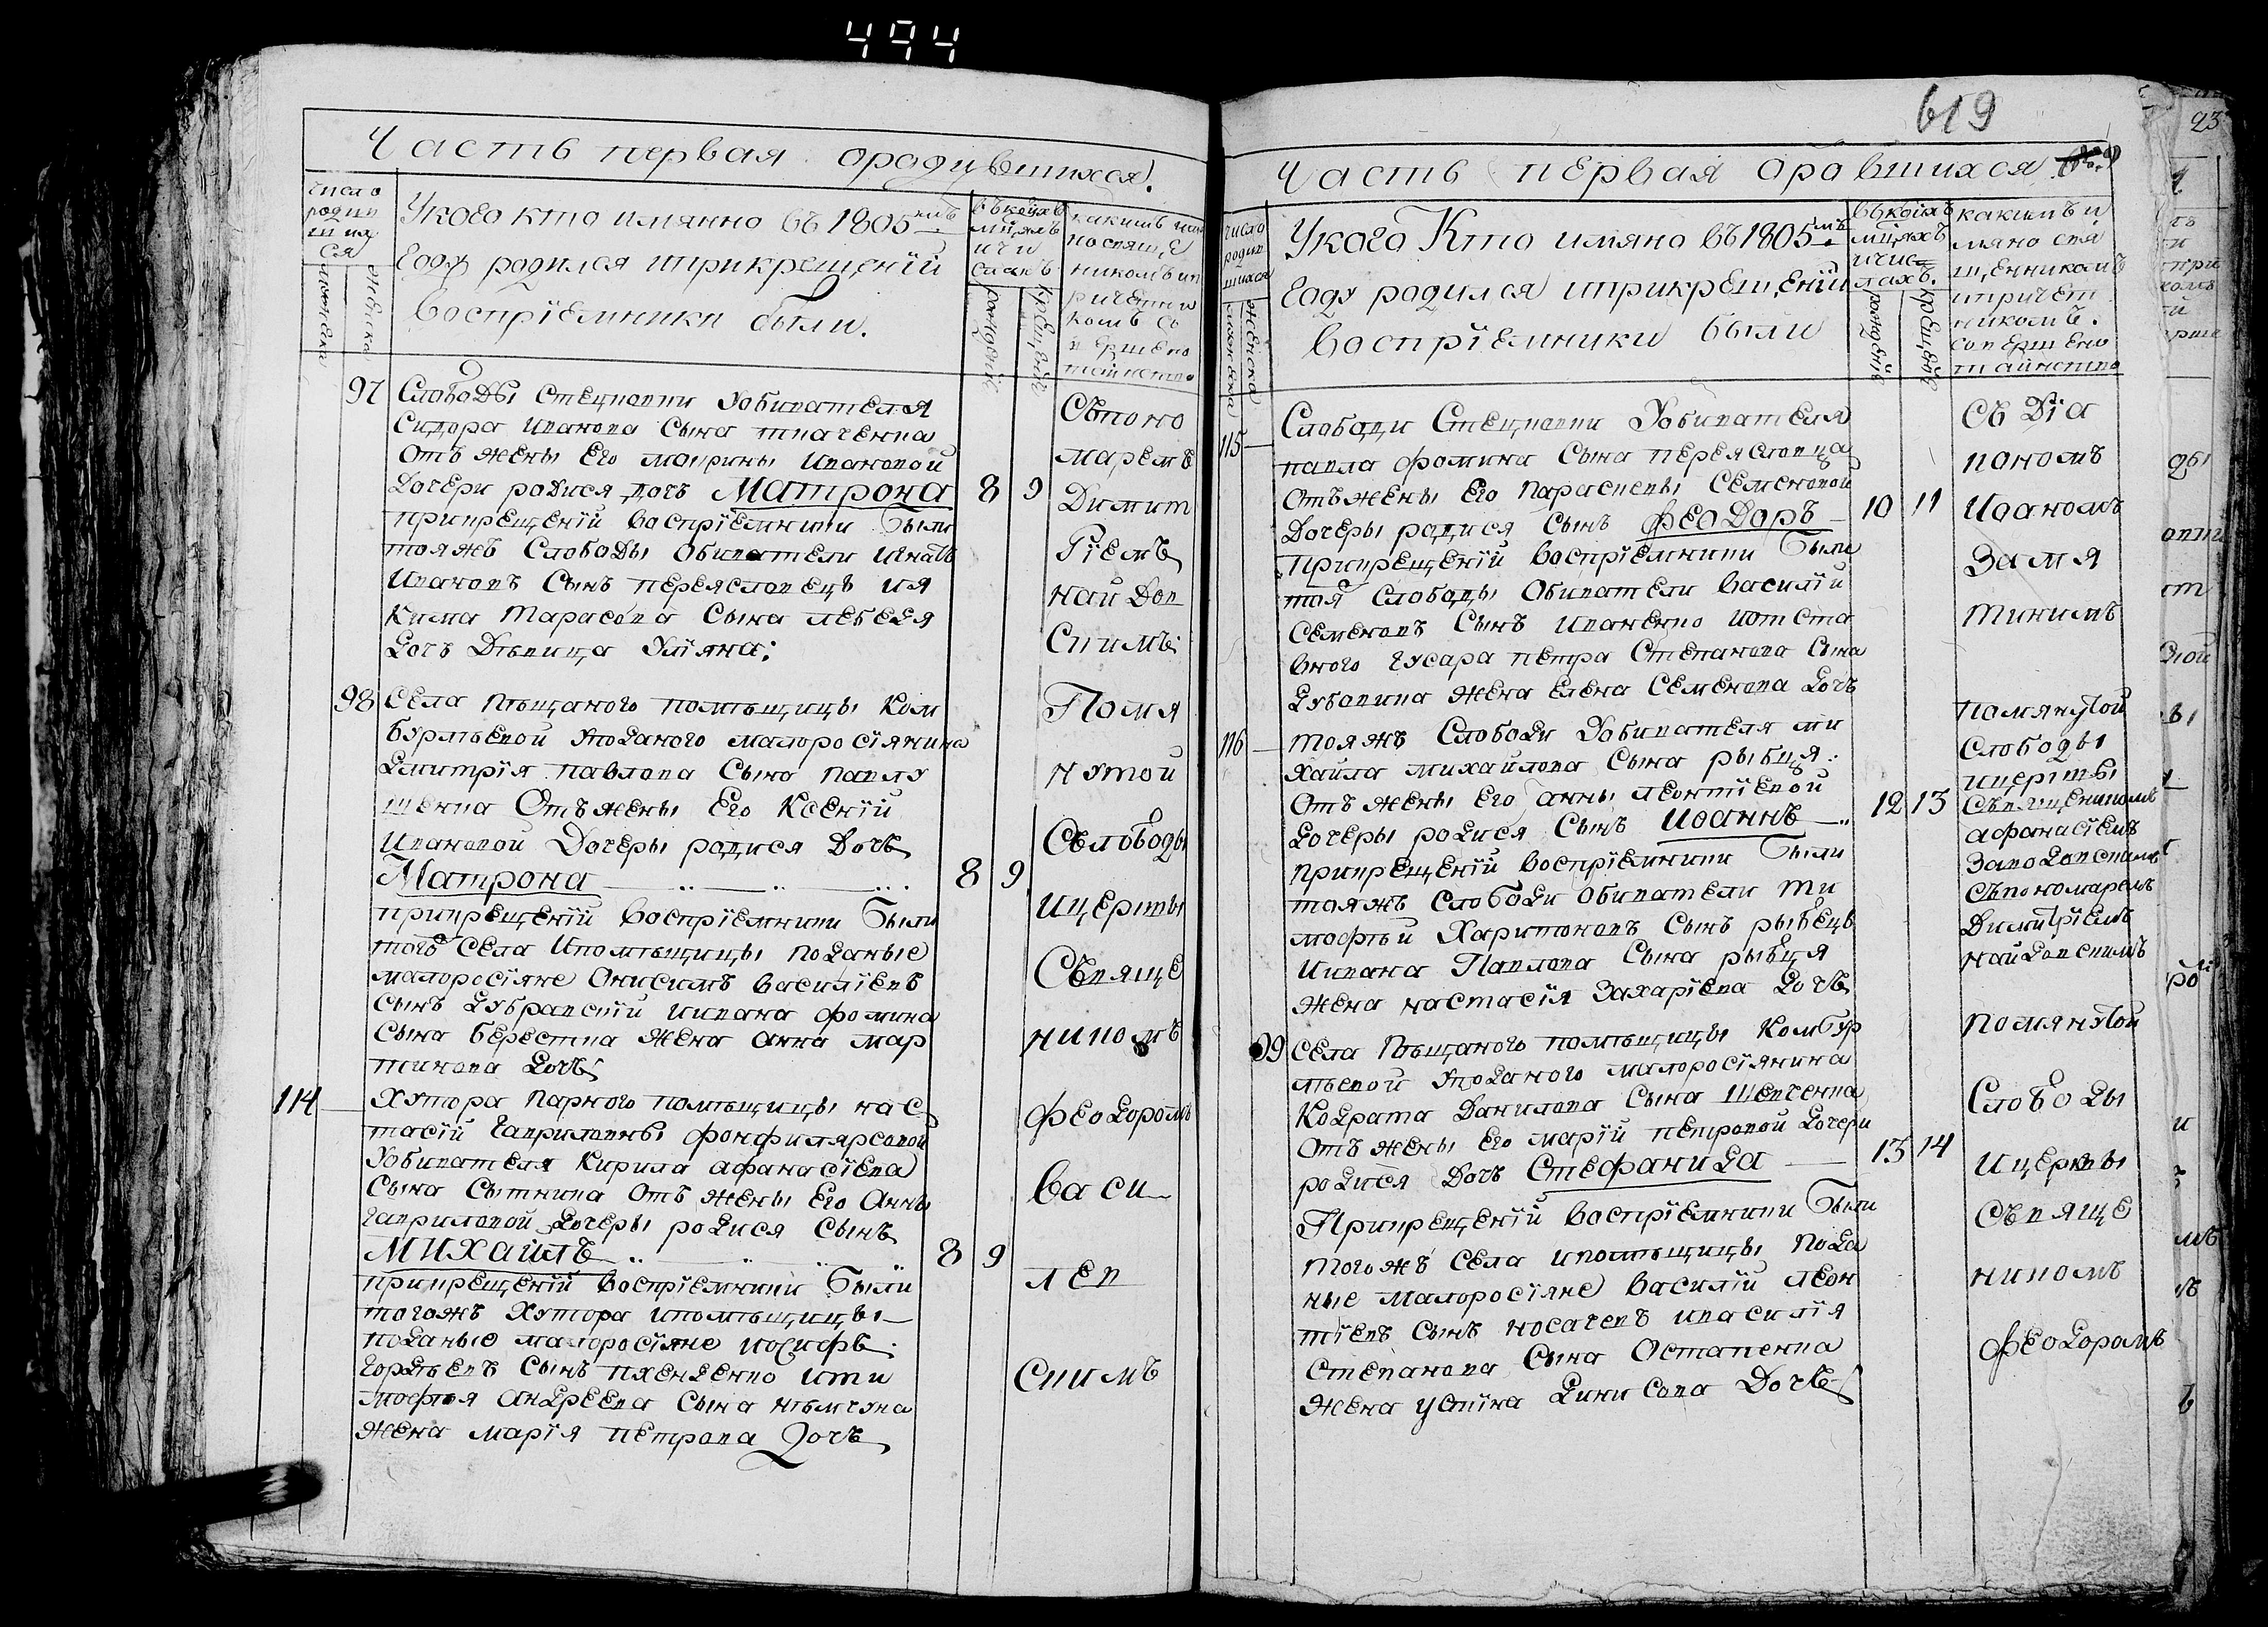 494
619
Часть первая ородившихся.
число родившихся
мужеска
женска
Укого кто имянно въ 1805мъ
Году родился иприкрещенїи
восприемники были.
вькоихъ мцахъ ичислахъ
рожденїе
крещенїе
какимъ имянно священникомъ ипричетникомъ совершено таинство
97
Слободы Стецковки Уобивателя
Сидора Иванова Сына ткаченка
Отъ жены Его марины Ивановой
Дочери родися дочь Матрона
8 9
прикрещенїи восприемники были
тояжъ Слободы Обиватели игнатъ
Ивановъ Сынъ переясловецъ ия
кима Тарасова Сына лебедя
дочь Дѣвица Улїяна:
Съпоно
маремъ
Димит
рїемъ
найдов
скимъ
98
Села пѣщаного помѣщицы Ком
бурлѣевой уподаного малоросїянина
Дмитрїя павлова Сына павлу
шенка Отъ жены Его Ксенїи
Ивановой Дочеры родися Дочь
Матрона
8 9
прикрещенїи восприемники были
тогъ Села ипомѣщицы поданые
малоросїяне Онисимъ василїевъ
сынъ дубравскїй ивана фомина
Сына берестка жена анна мар
тинова дочь
Помя
нутой
Сълободы
ицеркви
Съвяще
никомъ
феодоромъ
васи
лев
скимъ
114
Хутора парного помѣщицы нас
тасїи гавриловны фонфилярсовой
Уобивателя кирила афанасїева
Сына Ситника Отъ жены Его Анны
гавриловой дочеры родися сынъ
Михаилъ
8 9
прикрещенїи восприемники были
тогожъ Хутора ипомѣщицы
поданые малоросїяне иосифъ
гордѣевъ сынъ пхенденко ити
мофѣя андреева сына нѣмчука
жена марїя петрова дочь
Часть первая оравшихся
число родившихся
женска
Укого Кто имяно въ 1805мъ
Году родился иприкрещенїи
восприемники были
вькоихъ мцяхъ ичислахъ.
рожденїе
крещенїе
какимъ имяно священникомъ ипричетникомъ. совершено таинство
115
Слободи Стецковки Уобивателя
павла фомина Сына переясловца
Отъ жены Его параскевы Семеновой
Дочеры родися Сынъ феодоръ
10 11
прикрещенїи восприемники были
той Слободы Обиватели василїй
Семеновъ Сынъ иваненко иотста
вного гусара петра Степанова Сына
дубовика жена елена Семенова дочь
Съ Дїа
кономъ
Иоаномъ
Замя
тинимъ
116
тояжъ Слободи Уобивателя ми
хайла михайлова Сына рыбця:
Отъ жены Его анны леонтїевой
дочеры родися Сынъ иоаннъ
12 13
прикрещенїи восприемники были
тояжъ слободи обиватели ти
мофѣй Харитоновъ Сынъ рыбецъ
иивана Павлова Сына рыбця
жена настасїя Захарїева дочь
помянутой
Слободы
ицеркви
Съвященикомъ
афанасїемъ
Заводовскимъ
Съпономаремъ
Димитрїемъ
найдовскимъ
99
Села пѣщаного помѣщицы Комбур
лѣевой уподаного малоросїянина
Кодрата Данилова Сына Шевченка
Отъ жены Его марїи петровой дочери
родися Дочь Стефанида
13 14
Прикрещенїи восприемники были
тогожъ села ипомѣщицы пода
ные малоросїяне василїй леон
тїевъ сынъ носачевъ ивасилїя
степанова Сына Остапенка
жена устїна Динисова Дочь
помянутой
Слободы
ицеркви
Съвяще
никомъ
феодоромъ